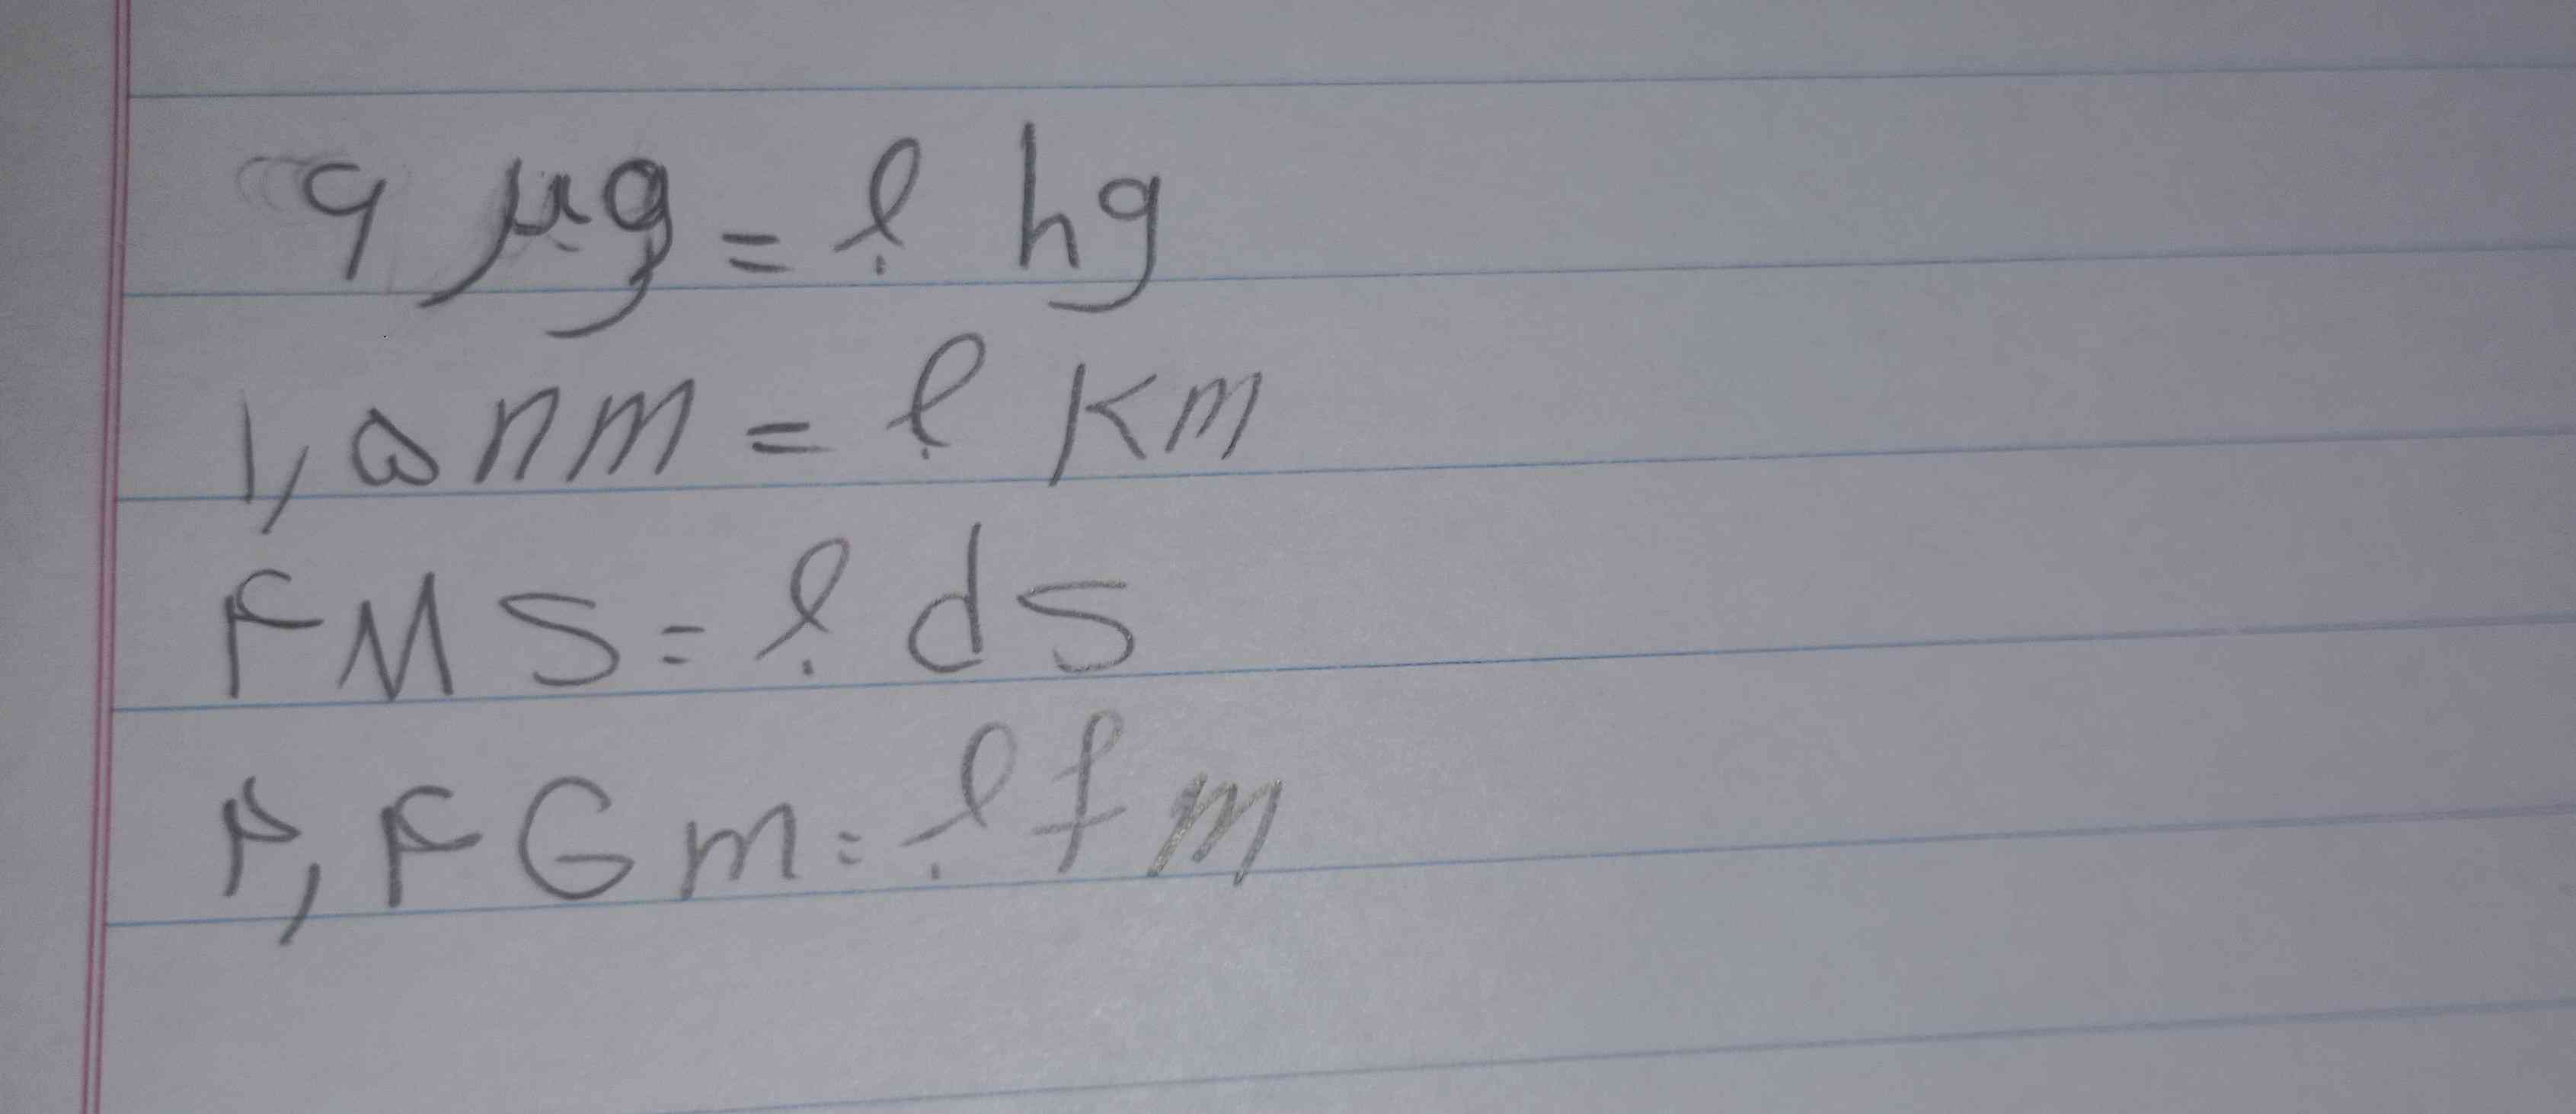 ۹ µg = ؟ hg
۱,۵ nm = ؟ Km
۴ M S = ؟ d s
۳,۴ G m = ؟ f m